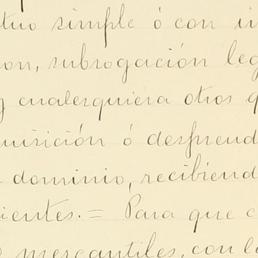 tuo simple ó con i
on, subrogación leg
y cualesquiera otros q
quisición ó desprend
dominio, recibiend
ientes. = Para que c
mercantiles, con l